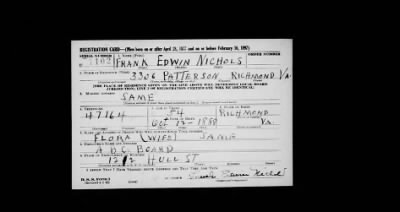 REGISTRATION CARD—(Men born on or after April 28, 1877 and on or before February 16, 1897)
SERIAL NUMBER 1. NAME (Print) ORDER NUMBER
1102 FRANK EDWIN NICHOLS
2. PLACE OF RESIDENCE (Print)
3306 PATTERSON RICHMOND VA.
[THE PLACE OF RESIDENCE GIVEN ON THE LINE ABOVE WILL DETERMINE LOCAL BOARD
JURISDICTION; LINE 2 OF REGISTRATION CERTIFICATE WILL BE IDENTICAL]
3. MAILING ADDRESS
SAME
4. TELEPHONE 5. AGE IN YEARS 6. PLACE OF BIRTH
47164 54 RICHMOND
DATE OF BIRTH
OCT 12 - 1888 VA.
7. NAME AND ADDRESS OF PERSON WHO WILL ALWAYS KNOW YOUR ADDRESS
FLORA (WIFE) SAME
8. EMPLOYER'S NAME AND ADDRESS
A B C BOARD
9. PLACE OF EMPLOYMENT OR BUSINESS
1212 HULL ST
I AFFIRM THAT I HAVE VERIFIED ABOVE ANSWERS AND THAT THEY ARE TRUE.
D. S. S. Form 1
Frank Edwin Nichols